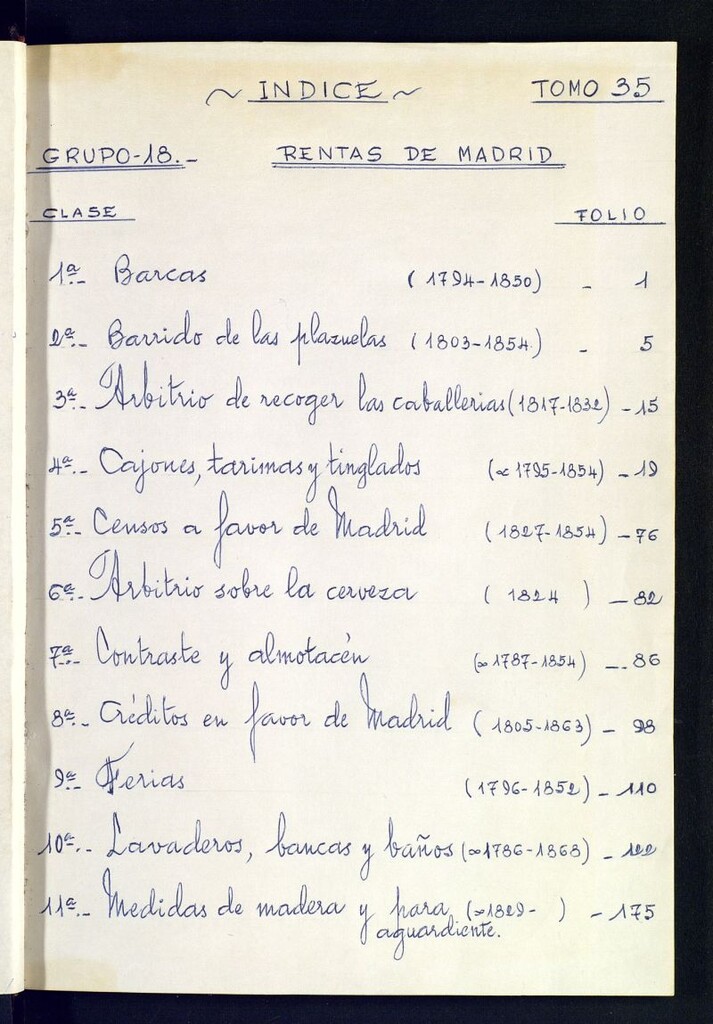 ~ INDICE ~ TOMO 35
GRUPO-18.- RENTAS DE MADRID
CLASE FOLIO
1ª.- Barcas (1794-1850) - 1
2ª.- Barrido de las plazuelas (1803-1854) - 5
3ª.- Arbitrio de recoger las caballerias (1817-1832) - 15
4ª.- Cajones, tarimas y tinglados (∝ 1795-1854) - 19
5ª.- Censos a favor de Madrid (1827-1854) - 76
6ª.- Arbitrio sobre la cerveza ( 1824 ) - 82
7ª.- Contraste y almotacén (∝ 1787-1854) - 86
8ª.- Créditos en favor de Madrid (1805-1863) - 98
9ª.- Ferias (1796-1852) - 110
10ª.- Lavaderos, bancas y baños (∝ 1786-1868) - 122
11ª.- Medidas de madera y para (∝ 1829- ) - 175
aguardiente.